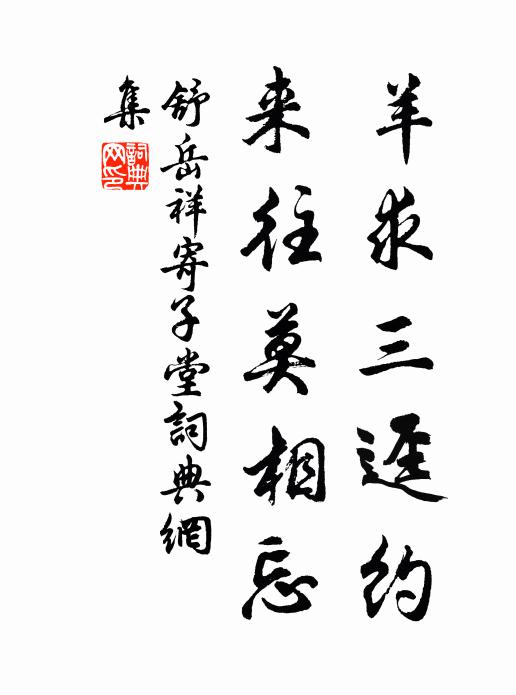 羊求三逕約
来往莫相忘
舒岳祥寄子堂詞典網
集
詞典
网印